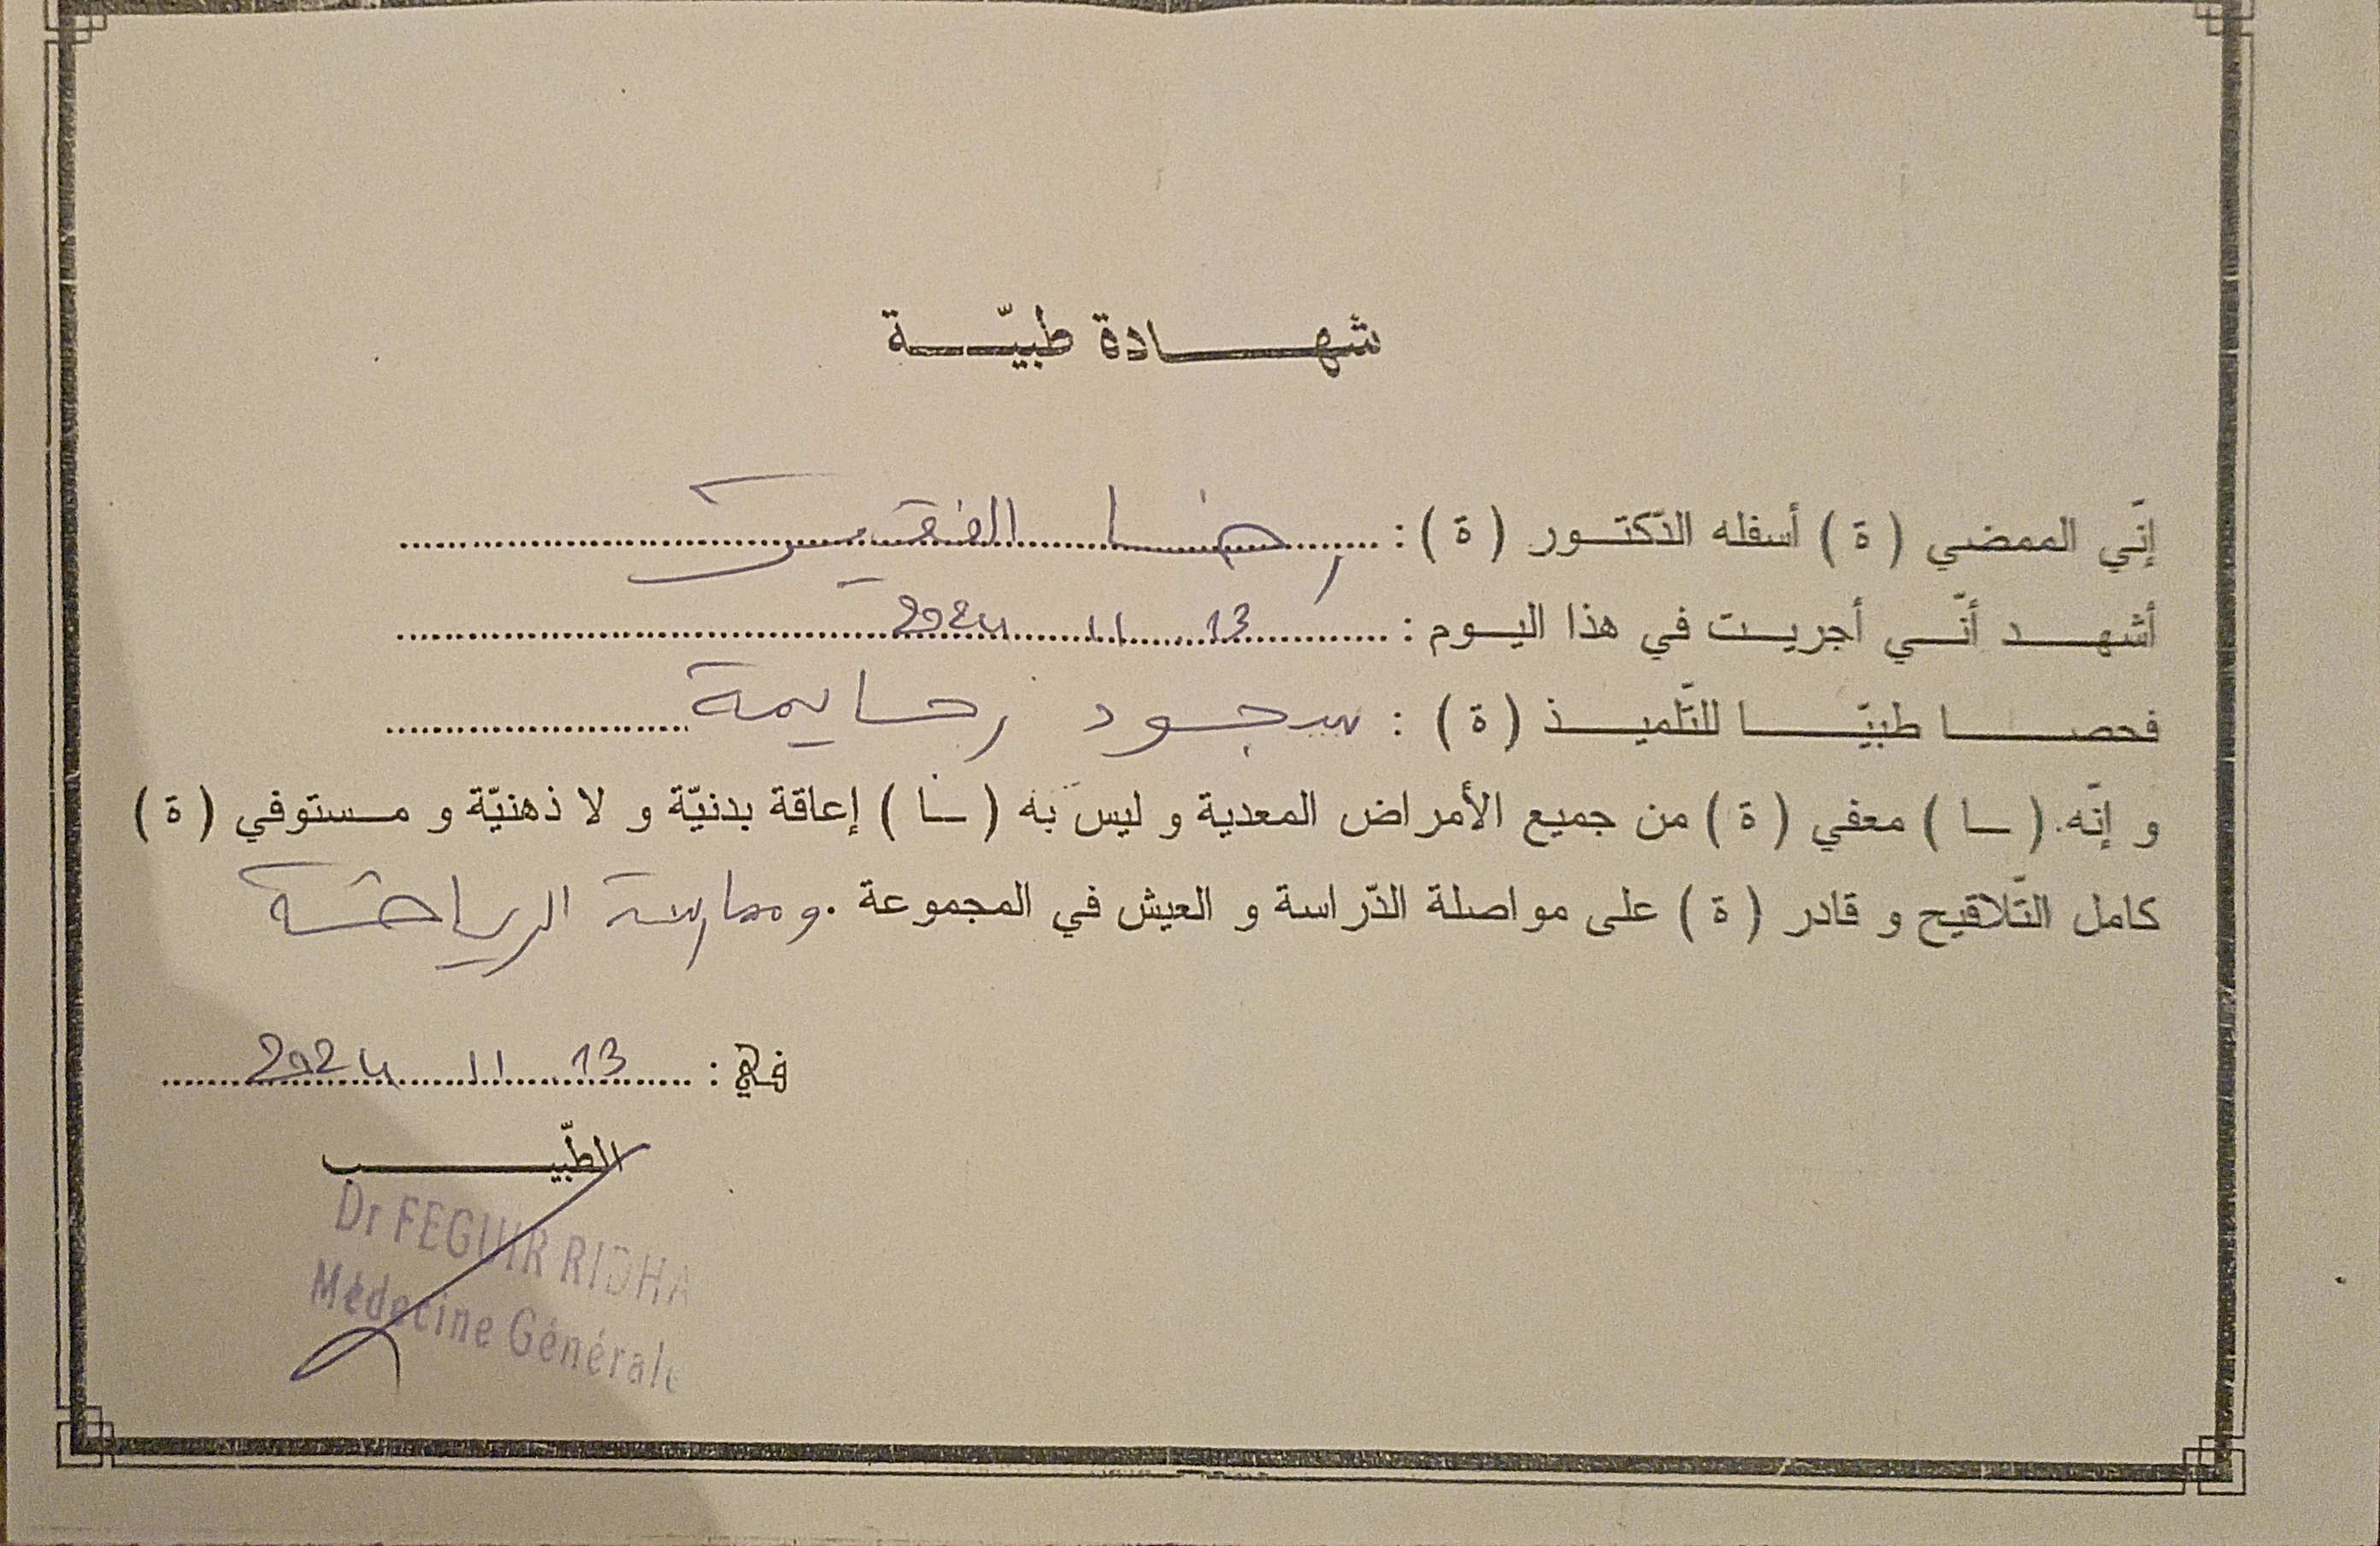 شهادة طبيّة
إنّي الممضي (ة) أسفله الدّكتور (ة) : رضا الفقير
أشهد أنّي أجريت في هذا اليوم : 13 11 2024
فحصا طبيّا للتّلميذ (ة) : سجود رحايمة
و إنّه (ـا) معفي (ة) من جميع الأمراض المعدية و ليس به (ـا) إعاقة بدنيّة و لا ذهنيّة و مستوفي (ة)
كامل التّلاقيح و قادر (ة) على مواصلة الدّراسة و العيش في المجموعة . وممارسة الرياضة
في : 13 11 2024
الطّبيب
Dr FEGUIR RIDHA
Médecine Générale